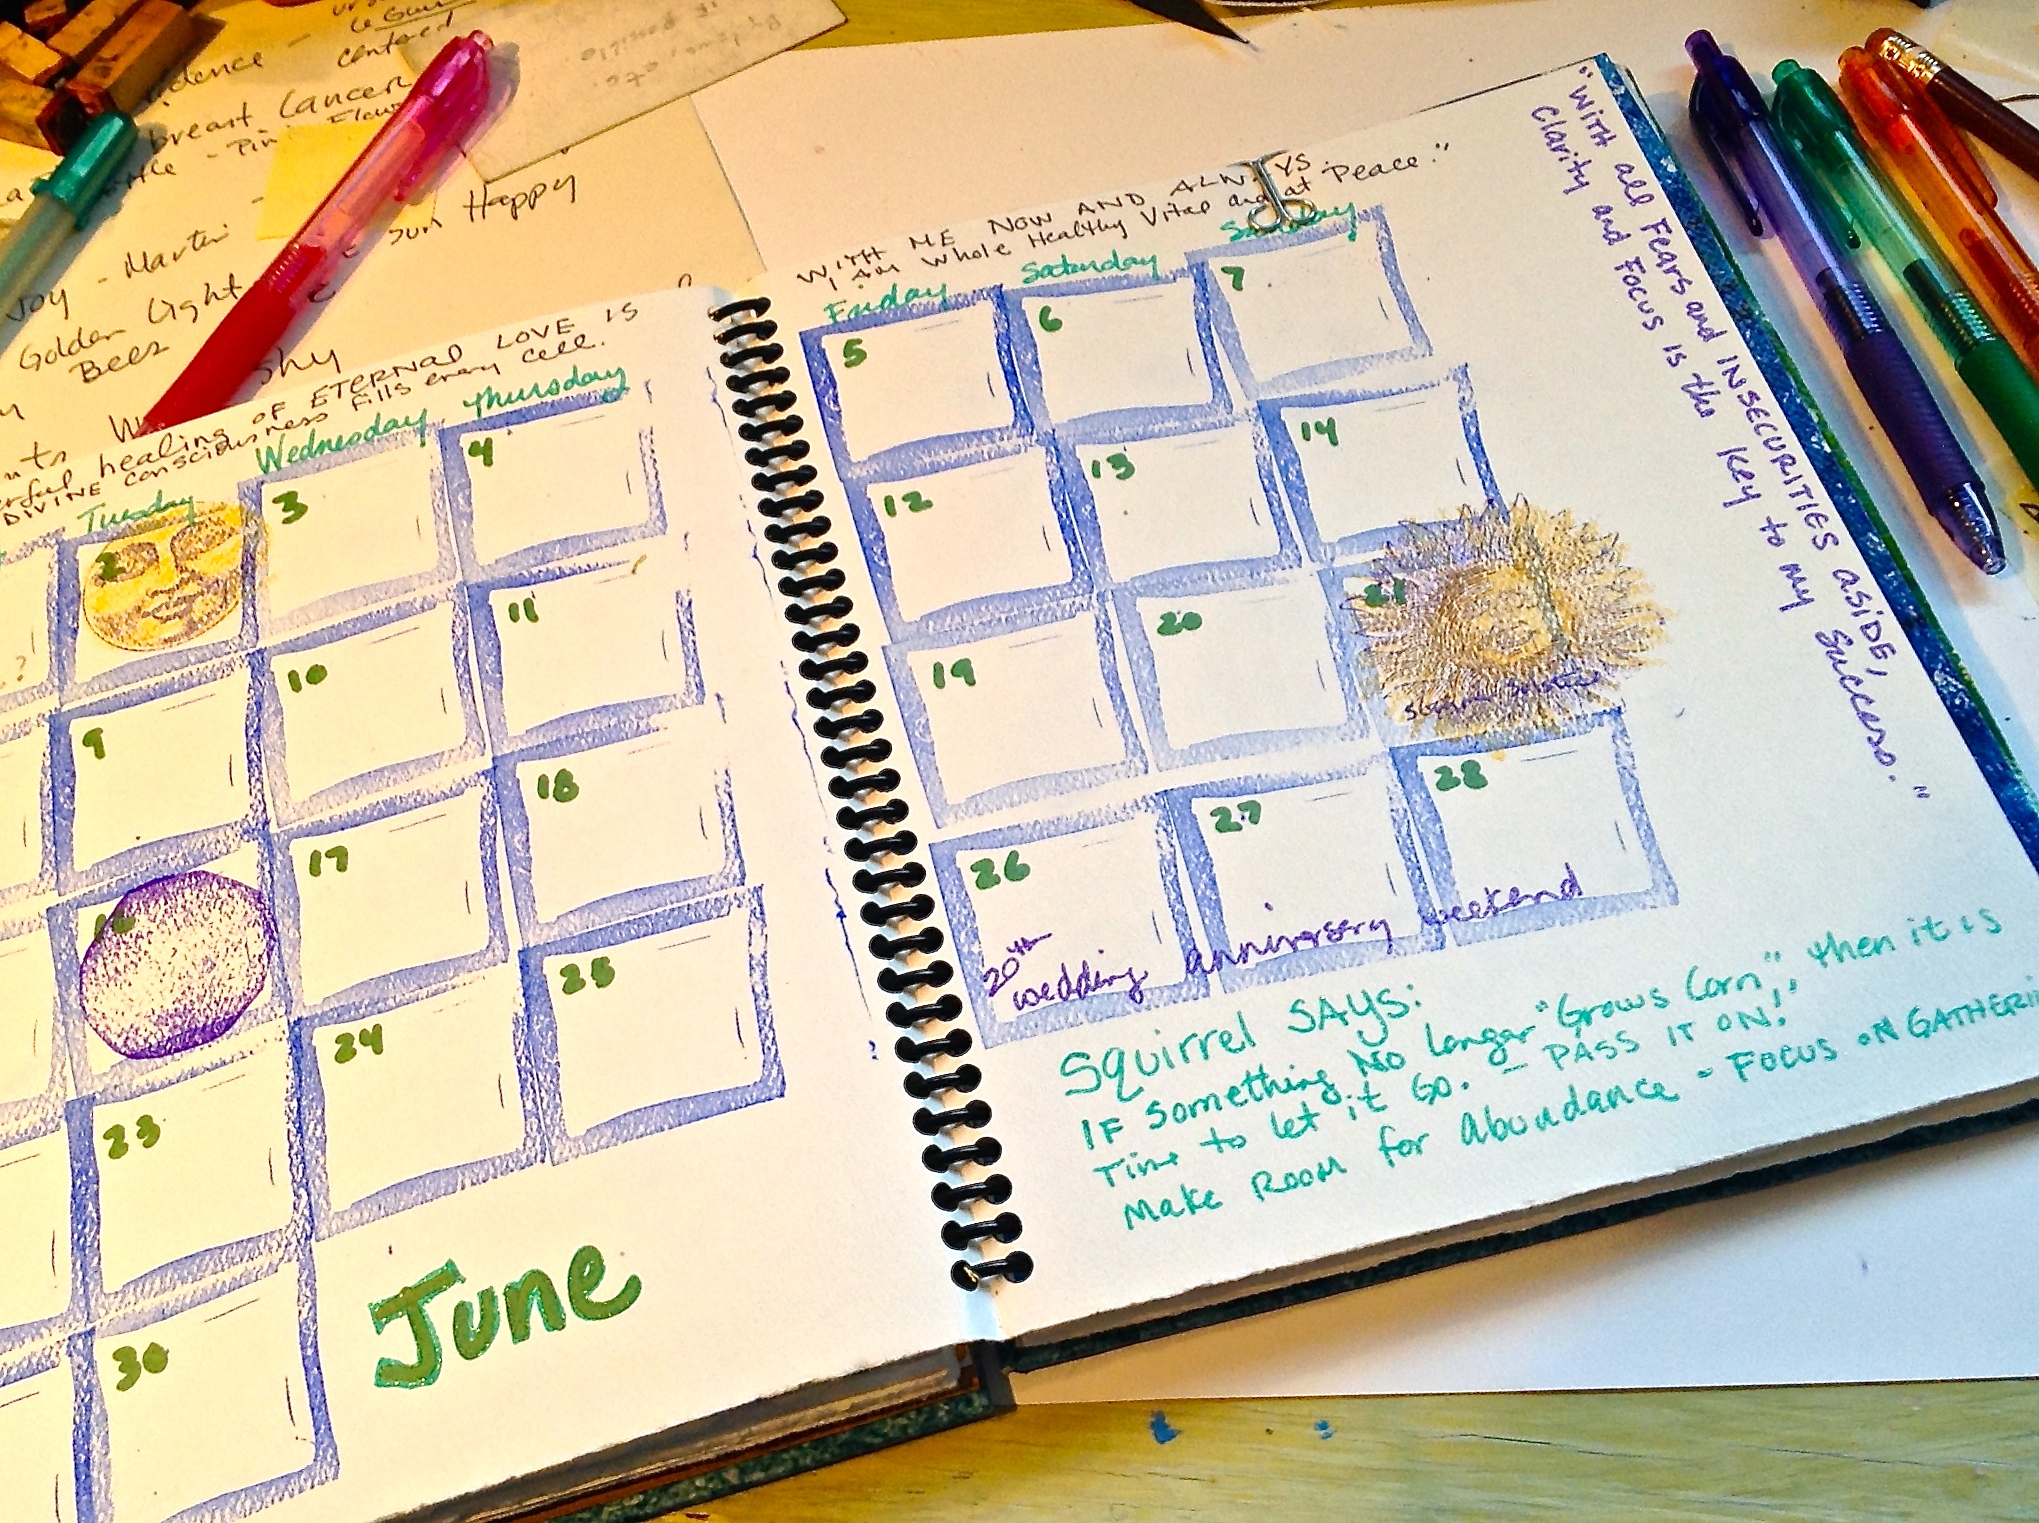 Le Guin
centered
breast Cancer
Joy - Martin
Golden Light
Bees
Sun Happy
healing OF ETERNAL LOVE IS
DIVINE consciousness Fills every cell.
Tuesday
Wednesday
Thursday
2
3
4
9
10
11
16
17
18
23
24
25
30
June
WITH ME NOW AND ALWAYS.
I Am Whole Healthy Vital and at Peace."
Friday
Saturday
Sunday
5
6
7
12
13
14
19
20
21
26
27
28
20th
wedding anniversary weekend
"With all Fears and INSECURITIES aside,
Clarity and Focus is the key to my Success."
Squirrel SAYS:
IF something No longer "Grows Corn", then it is
Time to let it Go. - PASS IT ON!
Make Room for Abundance - FOCUS ON GATHERI